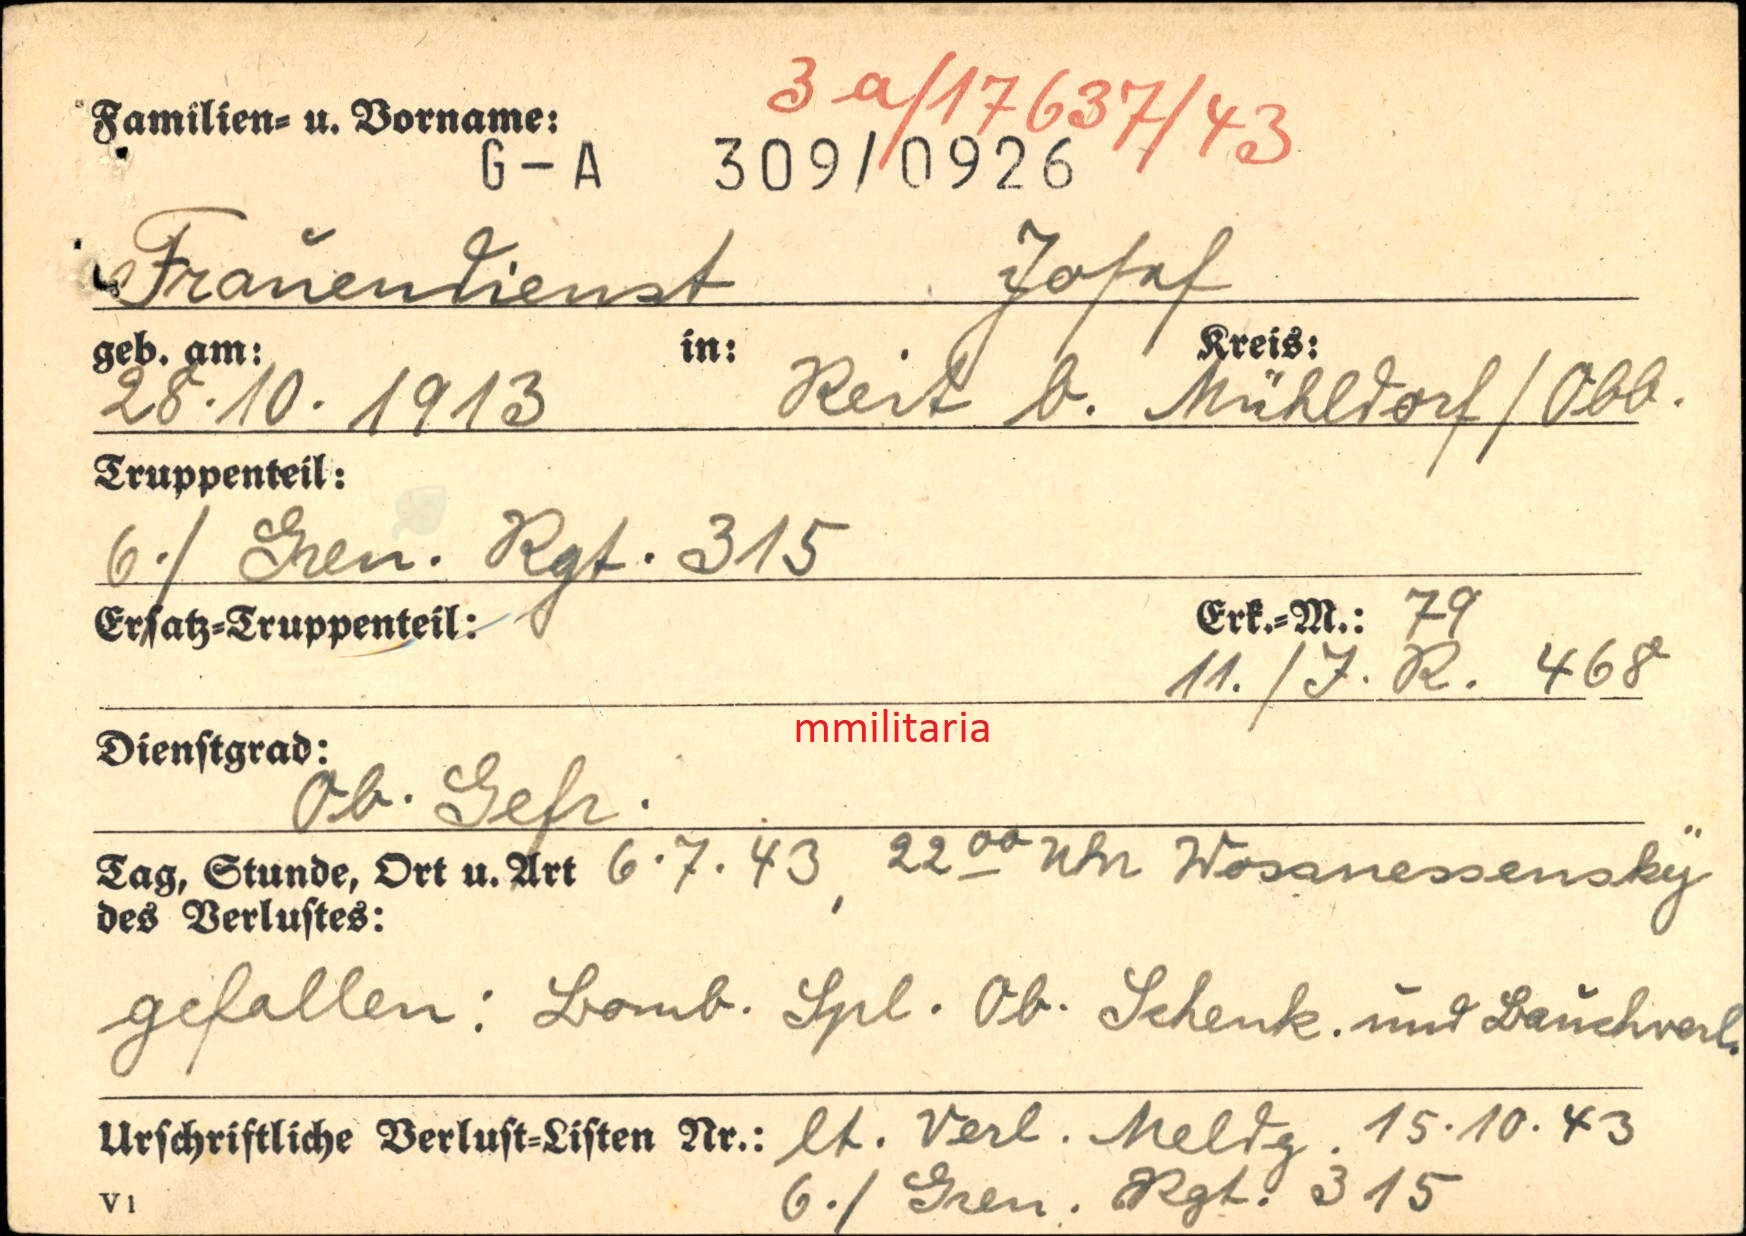 3a/17637/43
Familien- u. Vorname:
G-A 309/0926
Frauendienst Josef
geb. am: in: Kreis:
28.10.1913 Reit b. Mühldorf/Obb.
Truppenteil:
6./ Gren. Rgt. 315
Ersatz-Truppenteil: Erk.-M.: 79
11./J.R. 468
mmilitaria
Dienstgrad:
Ob. Gefr.
Tag, Stunde, Ort u. Art 6.7.43, 22 00 Uhr Wossnessenskÿ
des Verlustes:
gefallen: Bomb. Spl. Ob. Schenk. und Bauchverl.
Urschriftliche Verlust-Listen Nr.: lt. Verl. Meldg. 15.10.43
V1 6./ Gren. Rgt. 315